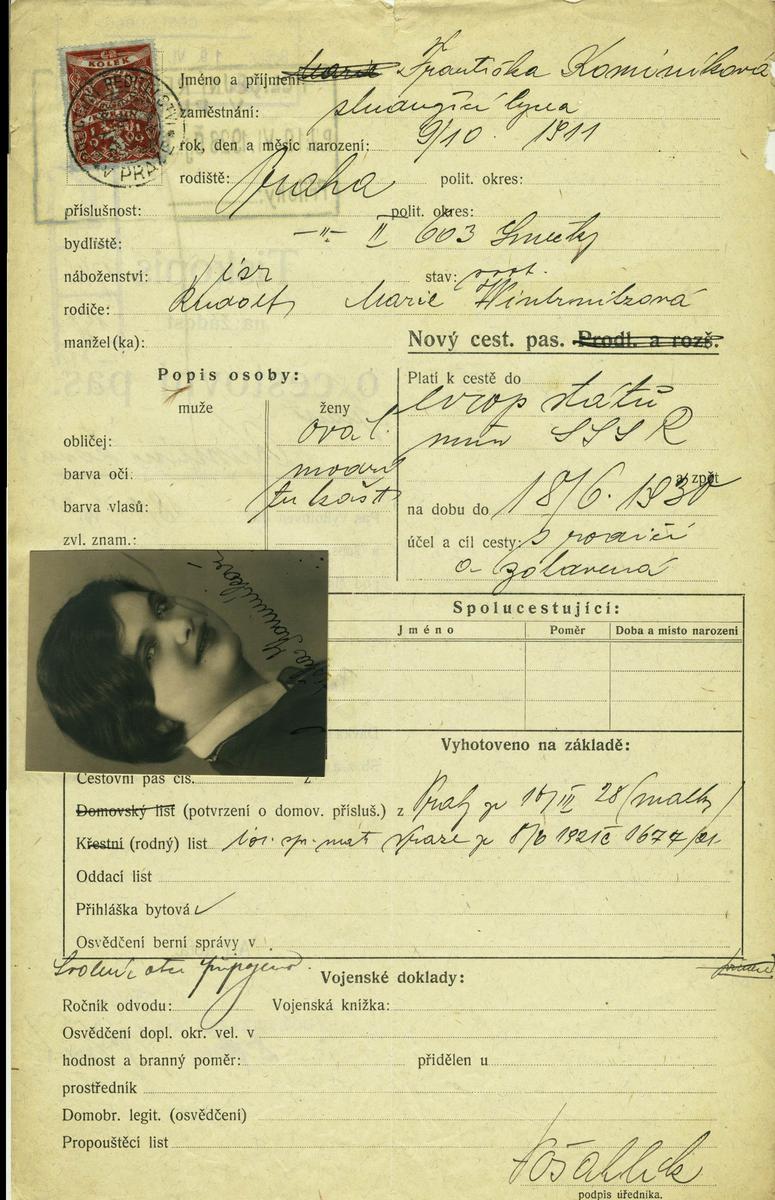 KOLEK
V PRAZE
Jméno a příjmení: Marie Františka Kominíková
zaměstnání:
rok, den a měsíc narození: 9/10. 1911
rodiště: Praha polit. okres:
příslušnost: polit. okres:
bydliště: -"- II 603 Smečky
náboženství: isr stav: svob.
rodiče: Rudolf, Marie Winternitzová
manžel(ka):
Nový cest. pas. Prodl. a rozš.
Popis osoby:
muže ženy
obličej: ovál.
barva očí: modré
barva vlasů: tm kašt
zvl. znam.:
Platí k cestě do evrop států
mim SSSR
a zpět
na dobu do 18/6. 1930
účel a cíl cesty: s rodiči
a zotavená
Kominíková
Spolucestující:
Jméno Poměr Doba a místo narození
Vyhotoveno na základě:
Cestovní pas čís. z
Domovský list (potvrzení o domov. přísluš.) z Prahy 28 (matky)
Křestní (rodný) list isr. mat Praze 1921 č 1677
Oddací list
Přihláška bytová ✓
Osvědčení berní správy v
Svolení otce připojeno.
Vojenské doklady:
Ročník odvodu: Vojenská knížka:
Osvědčení dopl. okr. vel. v
hodnost a branný poměr: přidělen u
prostředník
Domobr. legit. (osvědčení)
Propouštěcí list
podpis úředníka.